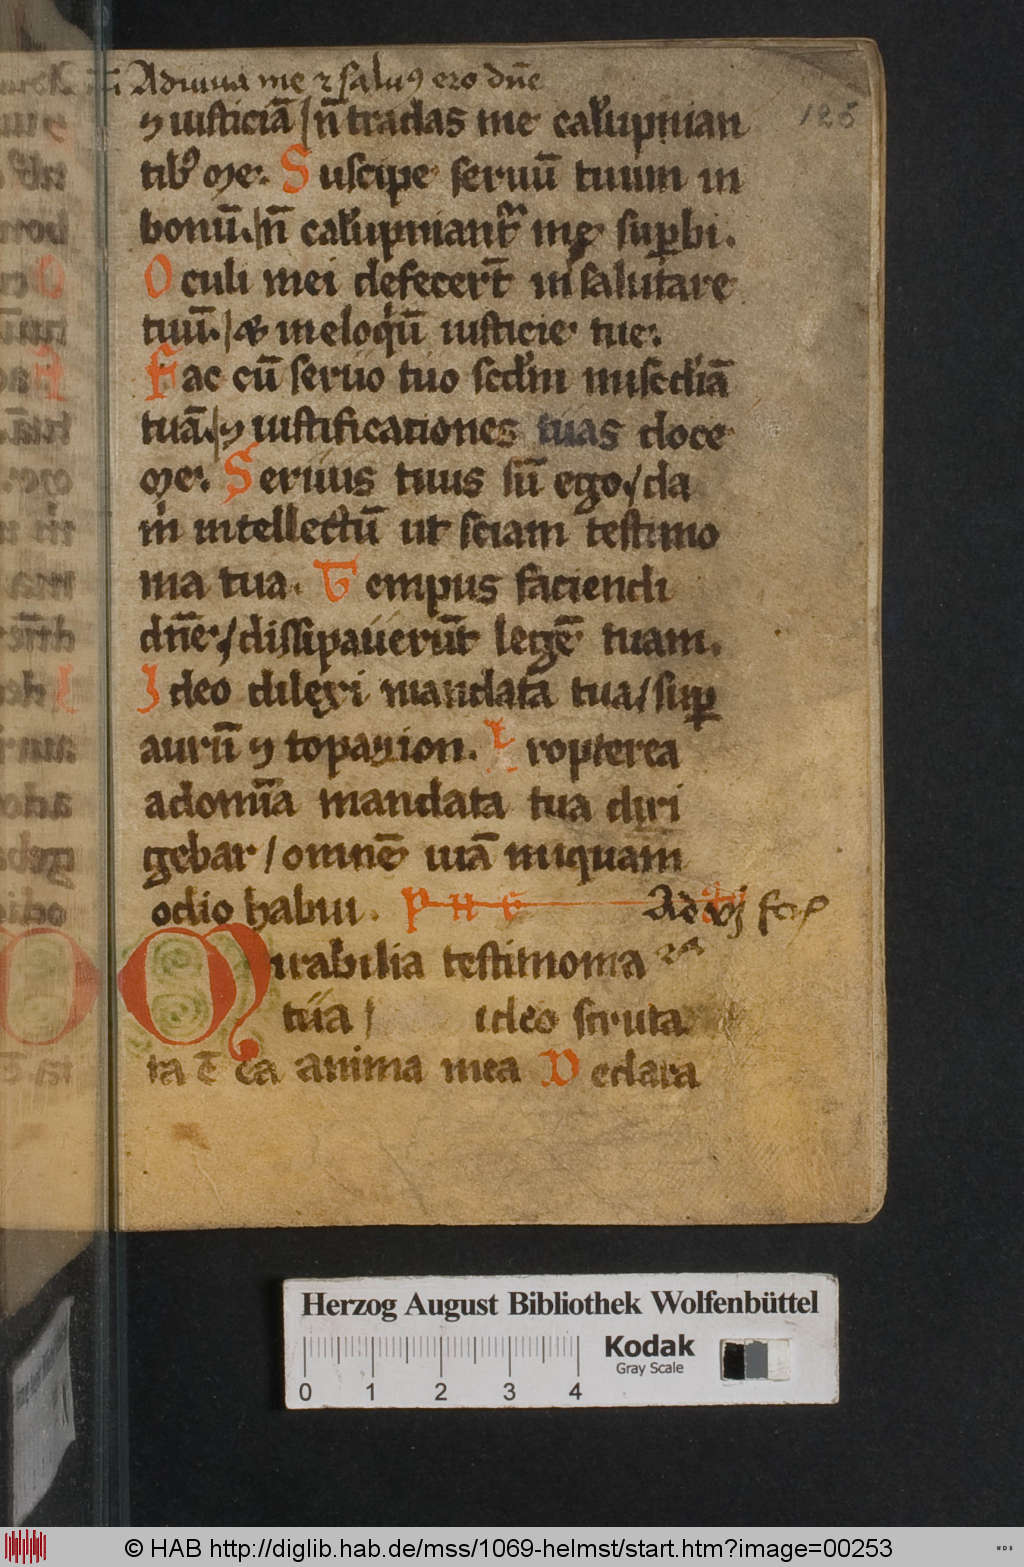 Adiuua me ⁊ saluꝰ ero dn̄e
⁊ iusticiā / n̄ tradas me calūpnian
tibꝰ me. Suscipe seruū tuum in
bonū. / n̄ calūpniant᷑ me suꝑbi.
Oculi mei defecerūt in salutare
tuū. / & in eloqͥū iusticie tue.
Fac cū seruo tuo scd̄m mis̄cdiā
tuā. / ⁊ iustificationes tuas doce
me. Seruus tuus sū ego / da
mͥ intellectū ut sciam testimo
nia tua. Tempus faciendi
dn̄e / dissipauerūt legē tuam.
Ideo dilexi mandata tua / suꝑ
aurū ⁊ topazion. Propterea
ad om̄ia mandata tua diri
gebar / omnē uiā iniquam
odio habui. Ad vj
Mirabilia testimonia
tua / ideo scruta
ta ē ea anima mea Declara
125
Herzog August Bibliothek Wolfenbüttel
Kodak
Gray Scale
0 1 2 3 4
© HAB http://diglib.hab.de/mss/1069-helmst/start.htm?image=00253